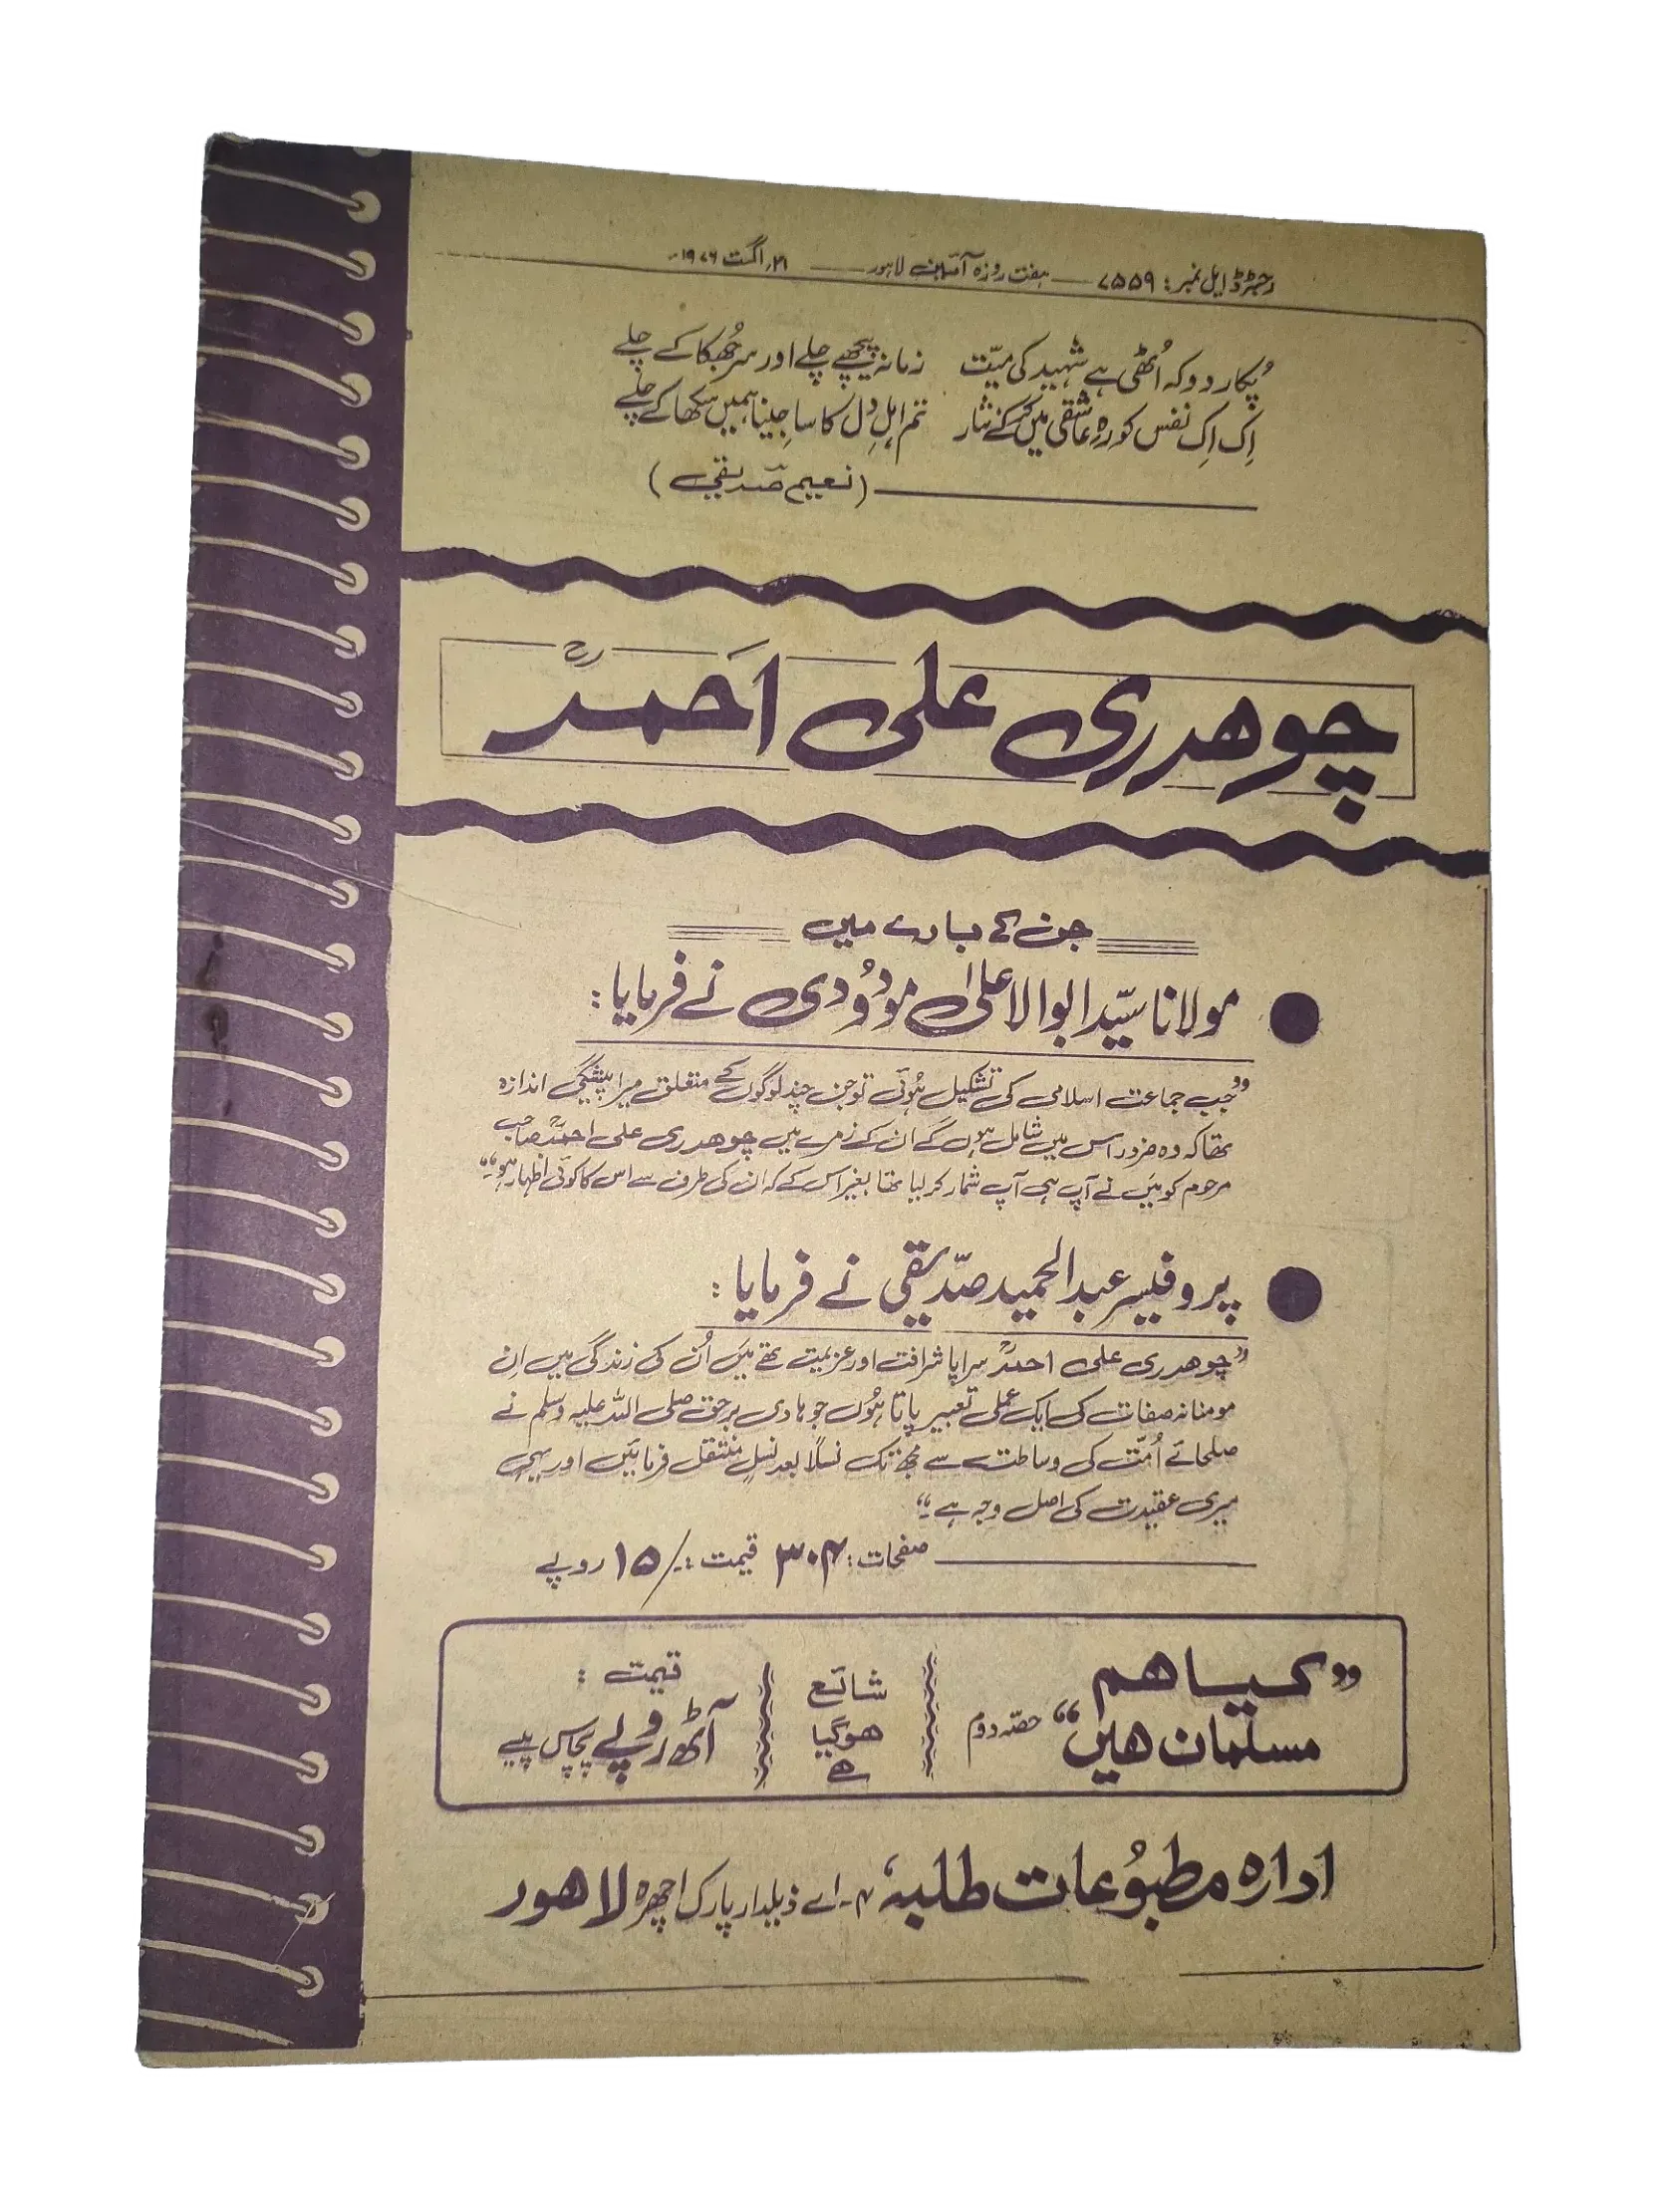 رجسٹرڈ ایل نمبر: ۷۵۵۹ — ہفت روزہ آئین لاہور — ۲۱؍ اگست ۱۹۷۶ء
پکار دو کہ اُٹھی ہے شہید کی میّت زمانہ پیچھے چلے اور سر جُھکا کے چلے
اِک اِک نفس کو رہِ عاشقی میں کر کے نثار تم اہلِ دل کا سا جینا ہمیں سکھا کے چلے
(نعیم صدیقی)
چوھدری علی احمدؒ
جن کے بارے میں
مولانا سیّد ابوالاعلیٰ مودُودی نے فرمایا:
”جب جماعت اسلامی کی تشکیل ہُوئی تو جن چند لوگوں کے متعلق میرا پیشگی اندازہ
تھا کہ وہ ضرور اس میں شامل ہوں گے ان کے زمرے میں چوھدری علی احمدؒ صاحب
مرحوم کو مَیں نے آپ ہی آپ شمار کر لیا تھا بغیر اس کے کہ ان کی طرف سے اس کا کوئی اظہار ہو۔“
پروفیسر عبدالحمید صدّیقی نے فرمایا:
”چوھدری علی احمدؒ سراپا شرافت اور عزیمت تھے مَیں اُن کی زندگی میں اِن
مومنانہ صفات کی ایک عملی تعبیر پاتا ہُوں جو ہادی برحق صلی اللہ علیہ وسلم نے
صلحائے اُمّت کی وساطت سے مجھ تک نسلاً بعد نسلٍ منتقل فرمائیں اور یہی
میری عقیدت کی اصل وجہ ہے۔“
صفحات: ۳۰۴ قیمت: ۱۵/- روپے
”کیا ھم
مسلمان ھیں“ حصّہ دوم
شائع
ھوگیا
ھے
قیمت:
آٹھ روپے پچاس پیسے
ادارہ مطبُوعات طلبہ، ۴۔اے ذیلدار پارک اچھرہ لاھور